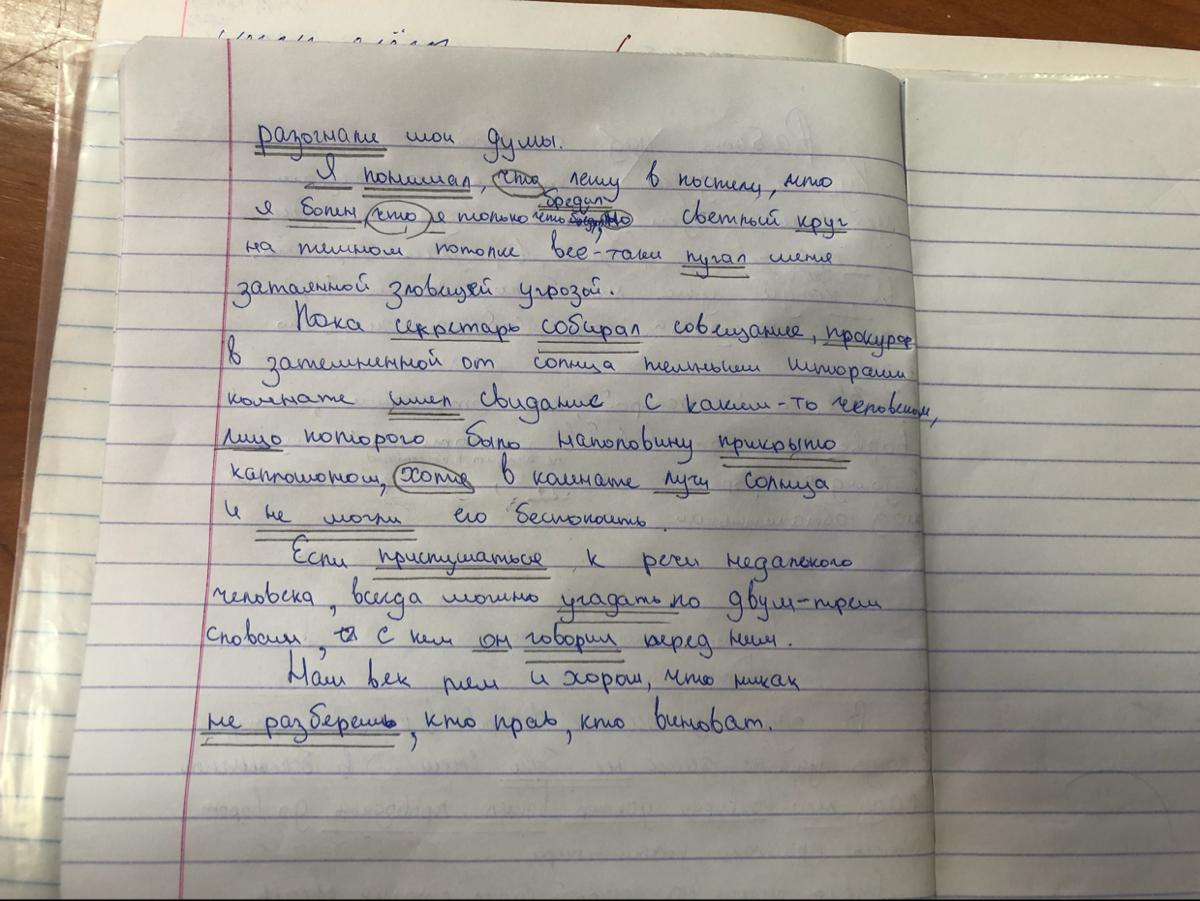 разогнали мои думы.
Я понимал, что лежу в постели, что
бредил
я болен, что я только что но светлый круг
на темном потолке все-таки пугал меня
затаенной зловещей угрозой.
Пока секретарь собирал совещание, прокурор
в затемненной от солнца темными шторами
комнате имел свидание с каким-то человеком,
лицо которого было наполовину прикрыто
капюшоном, хотя в комнате лучи солнца
и не могли его беспокоить.
Если прислушаться к речи недалекого
человека, всегда можно угадать по двум-трем
словам, с кем он говорил перед ним.
Наш век тем и хорош, что никак
не разберешь, кто прав, кто виноват.